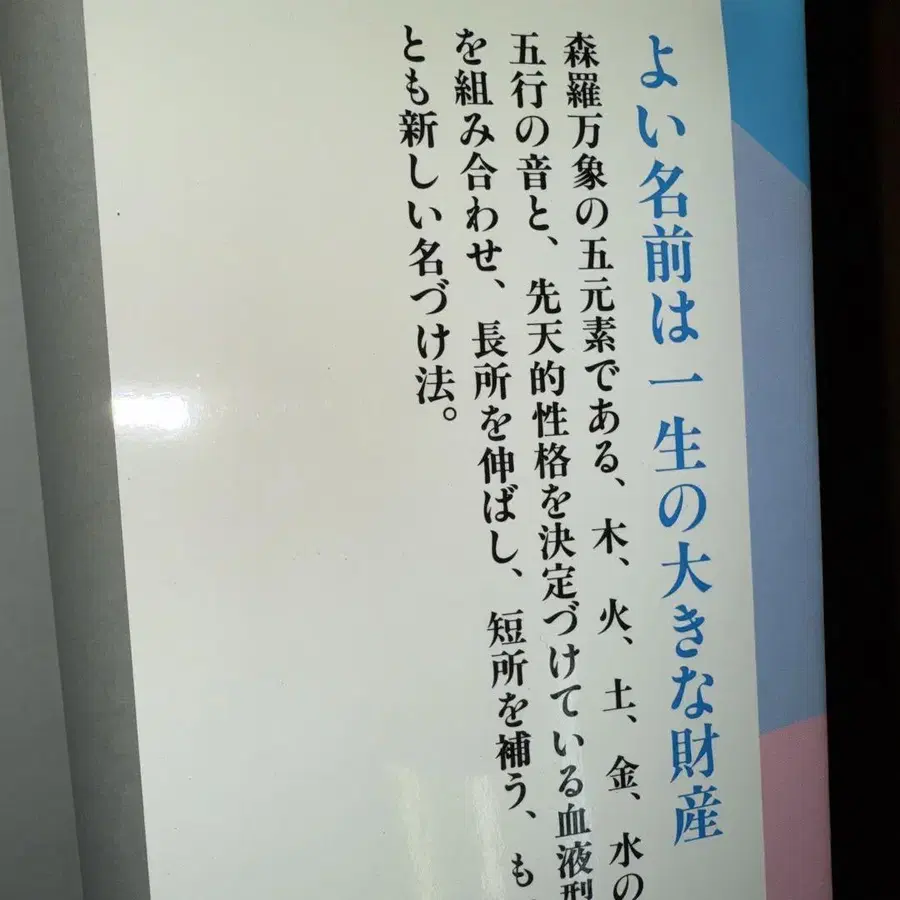 よい名前は一生の大きな財産
森羅万象の五元素である、木、火、土、金、水の
五行の音と、先天的性格を決定づけている血液型
を組み合わせ、長所を伸ばし、短所を補う、も
とも新しい名づけ法。